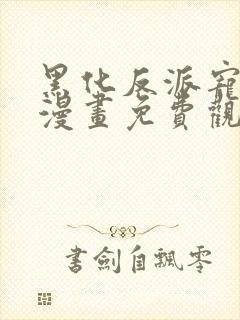 黑化反派寵
漫畫免費觀
書劍自飄零